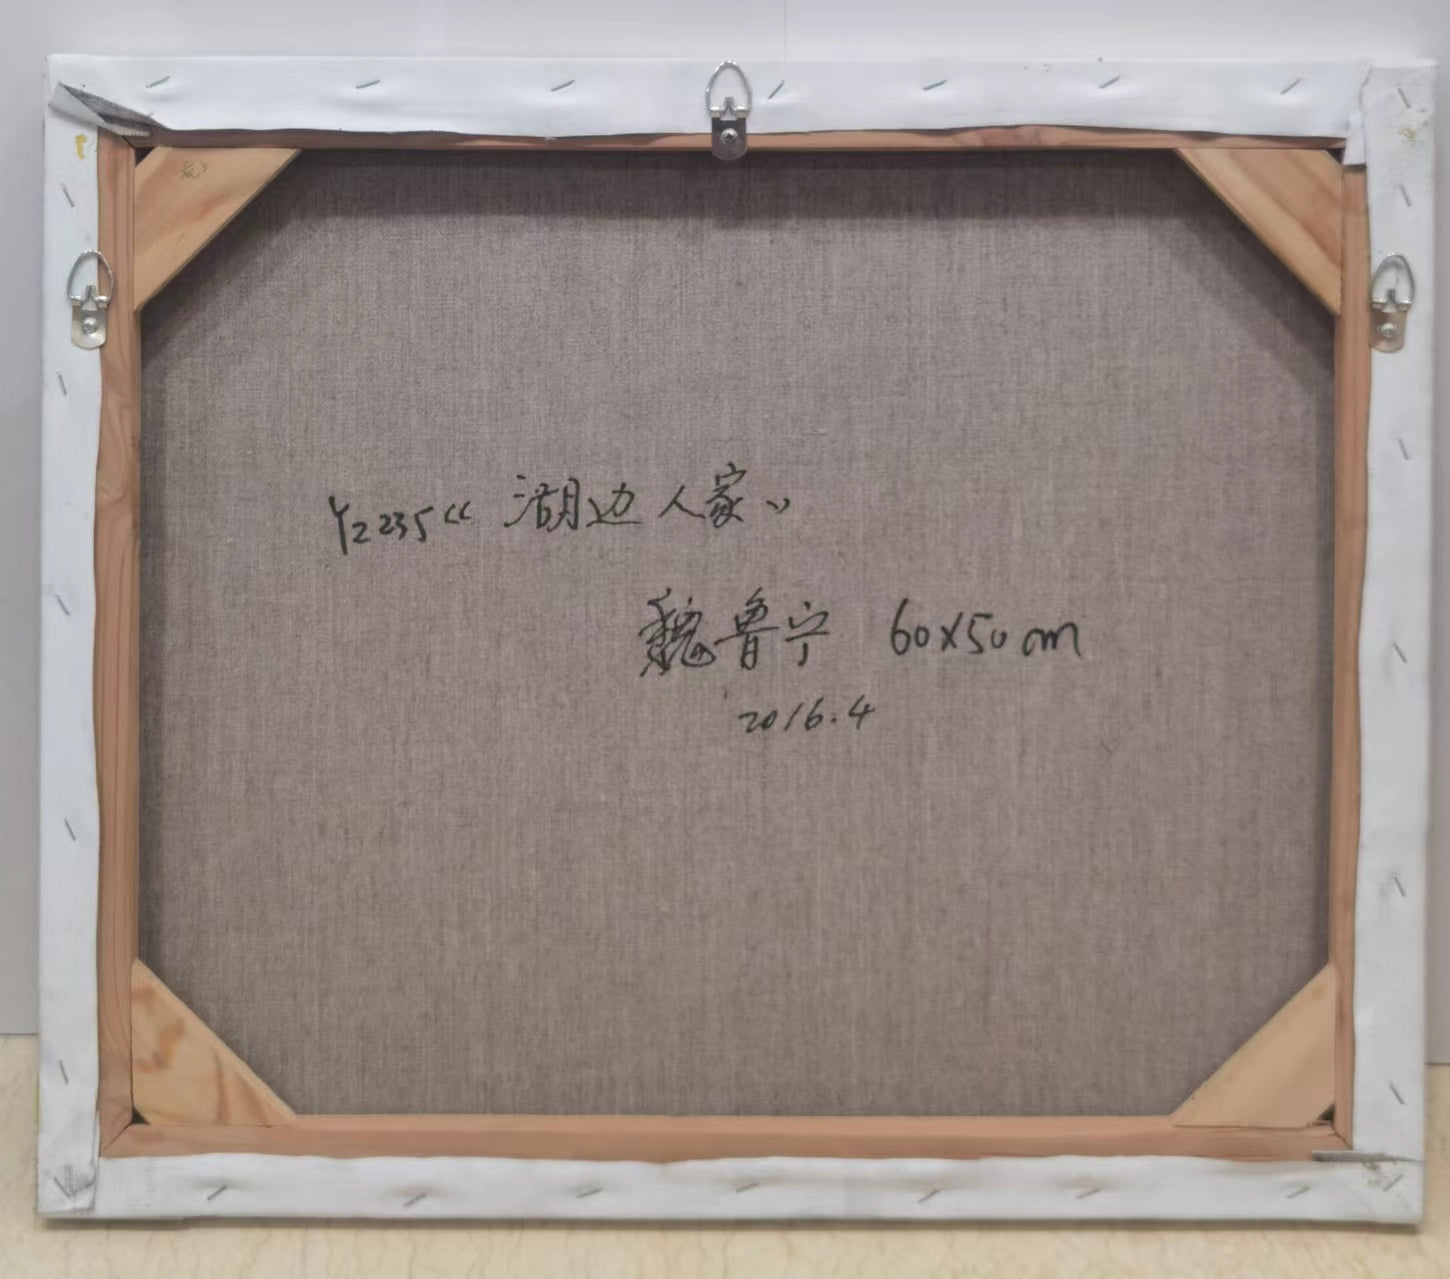 Y2235《湖边人家》
魏鲁宁 60x50cm
2016.4